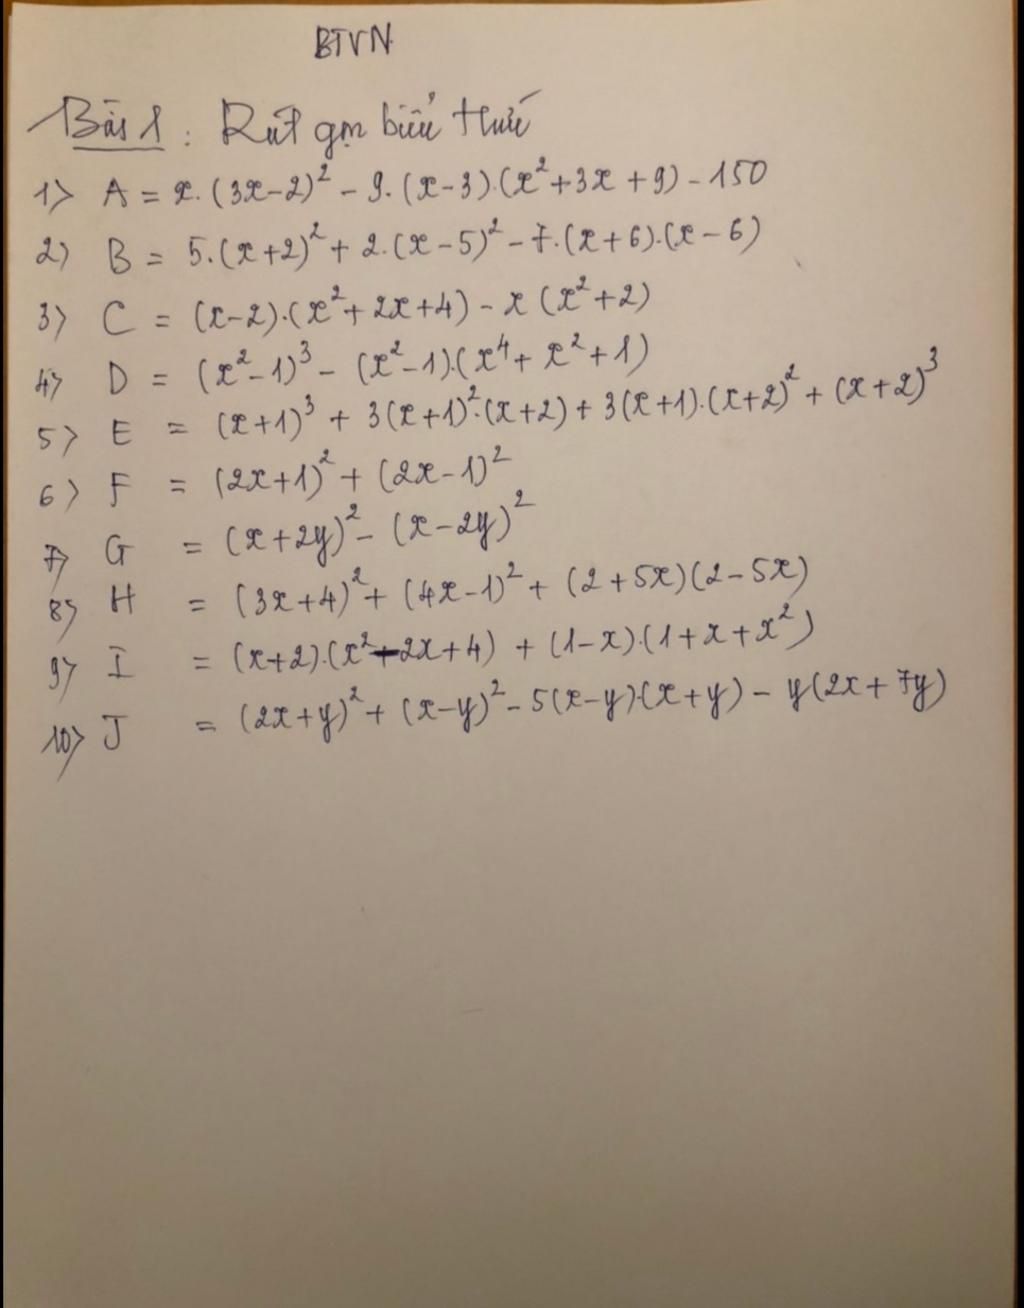 BTVN
Bài 1: Rút gọn biểu thức
1) A = x.(3x-2)² - 9.(x-3).(x²+3x+9) - 150
2) B = 5.(x+2)² + 2.(x-5)² - 7.(x+6).(x-6)
3) C = (x-2).(x²+2x+4) - x(x²+2)
4) D = (x²-1)³ - (x²-1).(x⁴+x²+1)
5) E = (x+1)³ + 3(x+1)².(x+2) + 3(x+1).(x+2)² + (x+2)³
6) F = (2x+1)² + (2x-1)²
7) G = (x+2y)² - (x-2y)²
8) H = (3x+4)² + (4x-1)² + (2+5x)(2-5x)
9) I = (x+2).(x²-2x+4) + (1-x).(1+x+x²)
10) J = (2x+y)² + (x-y)² - 5(x-y).(x+y) - y(2x+7y)